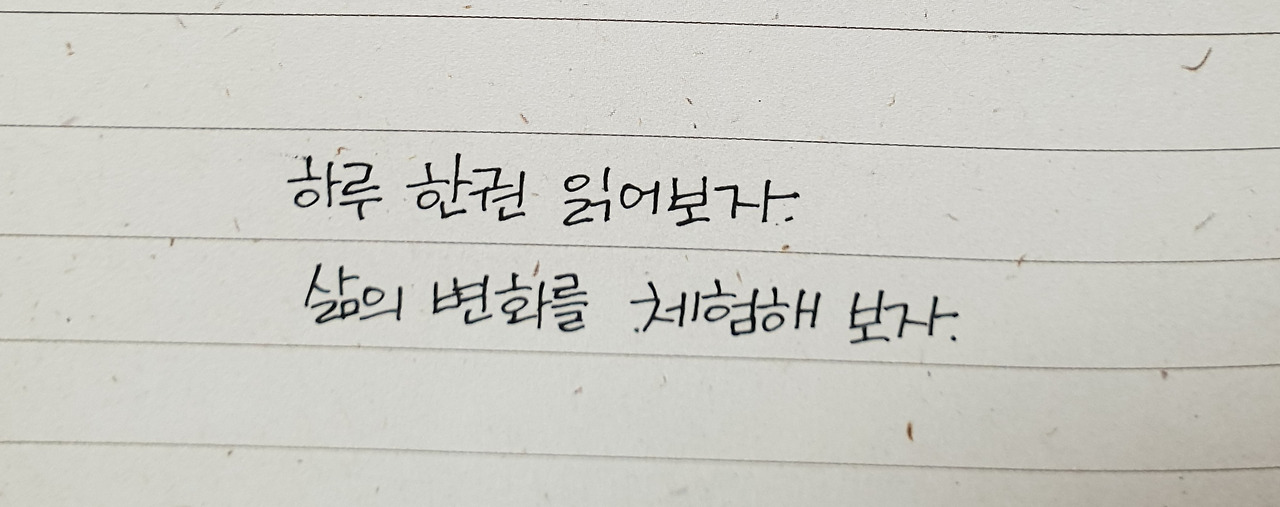 하루 한권 읽어보자.
삶의 변화를 체험해 보자.